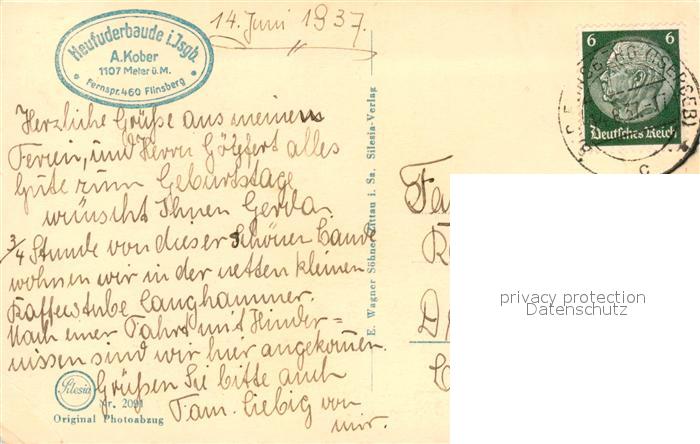 14. Juni 1937.
Heufuderbaude i. Jsgb.
A. Kober
1107 Meter ü. M.
Fernspr. 460 Flinsberg
6 6
Deutsches Reich
(ISERGEB)
Herzliche Grüße aus meinen
Ferien, und Herrn Göpfert alles
Gute zum Geburtstage
wünscht Ihnen Gerda.
3/4 Stunde von dieser schönen Baude
wohnen wir in der netten kleinen
Kaffeestube Langhammer.
Nach einer Fahrt mit Hinder=
nissen sind wir hier angekommen.
Grüßen Sie bitte auch
Fam. Liebig von
mir.
E. Wagner Söhne, Zittau i. Sa. Silesia-Verlag
privacy protection
Datenschutz
Silesia
Nr. 2091
Original Photoabzug